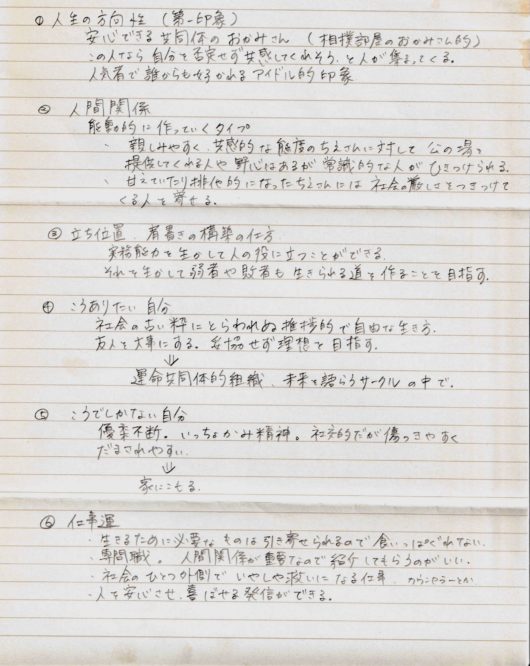 ① 人生の方向性 (第一印象)
安心できる共同体のおかみさん (相撲部屋のおかみさん的)
この人なら自分を否定せず共感してくれそう、と人が集まってくる。
人気者で誰からも好かれるアイドル的印象
② 人間関係
能動的に作っていくタイプ
・親しみやすく、共感的な態度のちえさんに対して公の場を
提供してくれる人や野心はあるが常識的な人がひきつけられる。
・甘えていたり排他的になったちえさんには社会の厳しさをつきつけて
くる人を寄せる。
③ 立ち位置、肩書きの構築の仕方
実務能力を生かして人の役に立つことができる。
それを生かして弱者や敗者も生きられる道を作ることを目指す。
④ こうありたい自分
社会の古い枠にとらわれぬ 的で自由な生き方。
友人を大事にする。妥協せず理想を目指す。
↓
運命共同体的組織、未来を語らうサークルの中で。
⑤ こうでしかない自分
優柔不断。いっちょかみ精神。社交的だが傷つきやすく
だまされやすい。
↓
家にこもる。
⑥ 仕事運
・生きるために必要なものは引き寄せられるので食いっぱぐれない。
・専門職。人間関係が重要なので紹介してもらうのがいい。
・社会のひとつ外側でいやしや救いになる仕事
・人を安心させ、喜ばせる発信ができる。